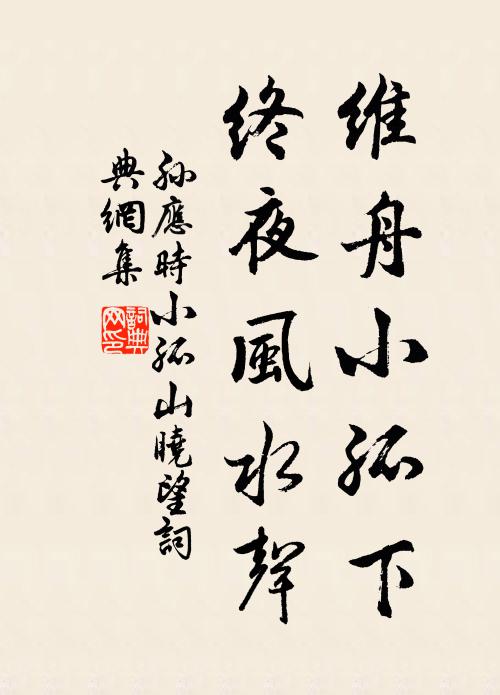 維舟小孤下
終夜風水聲
孫應時小孤山曉望詞
典網集
詞典
网印